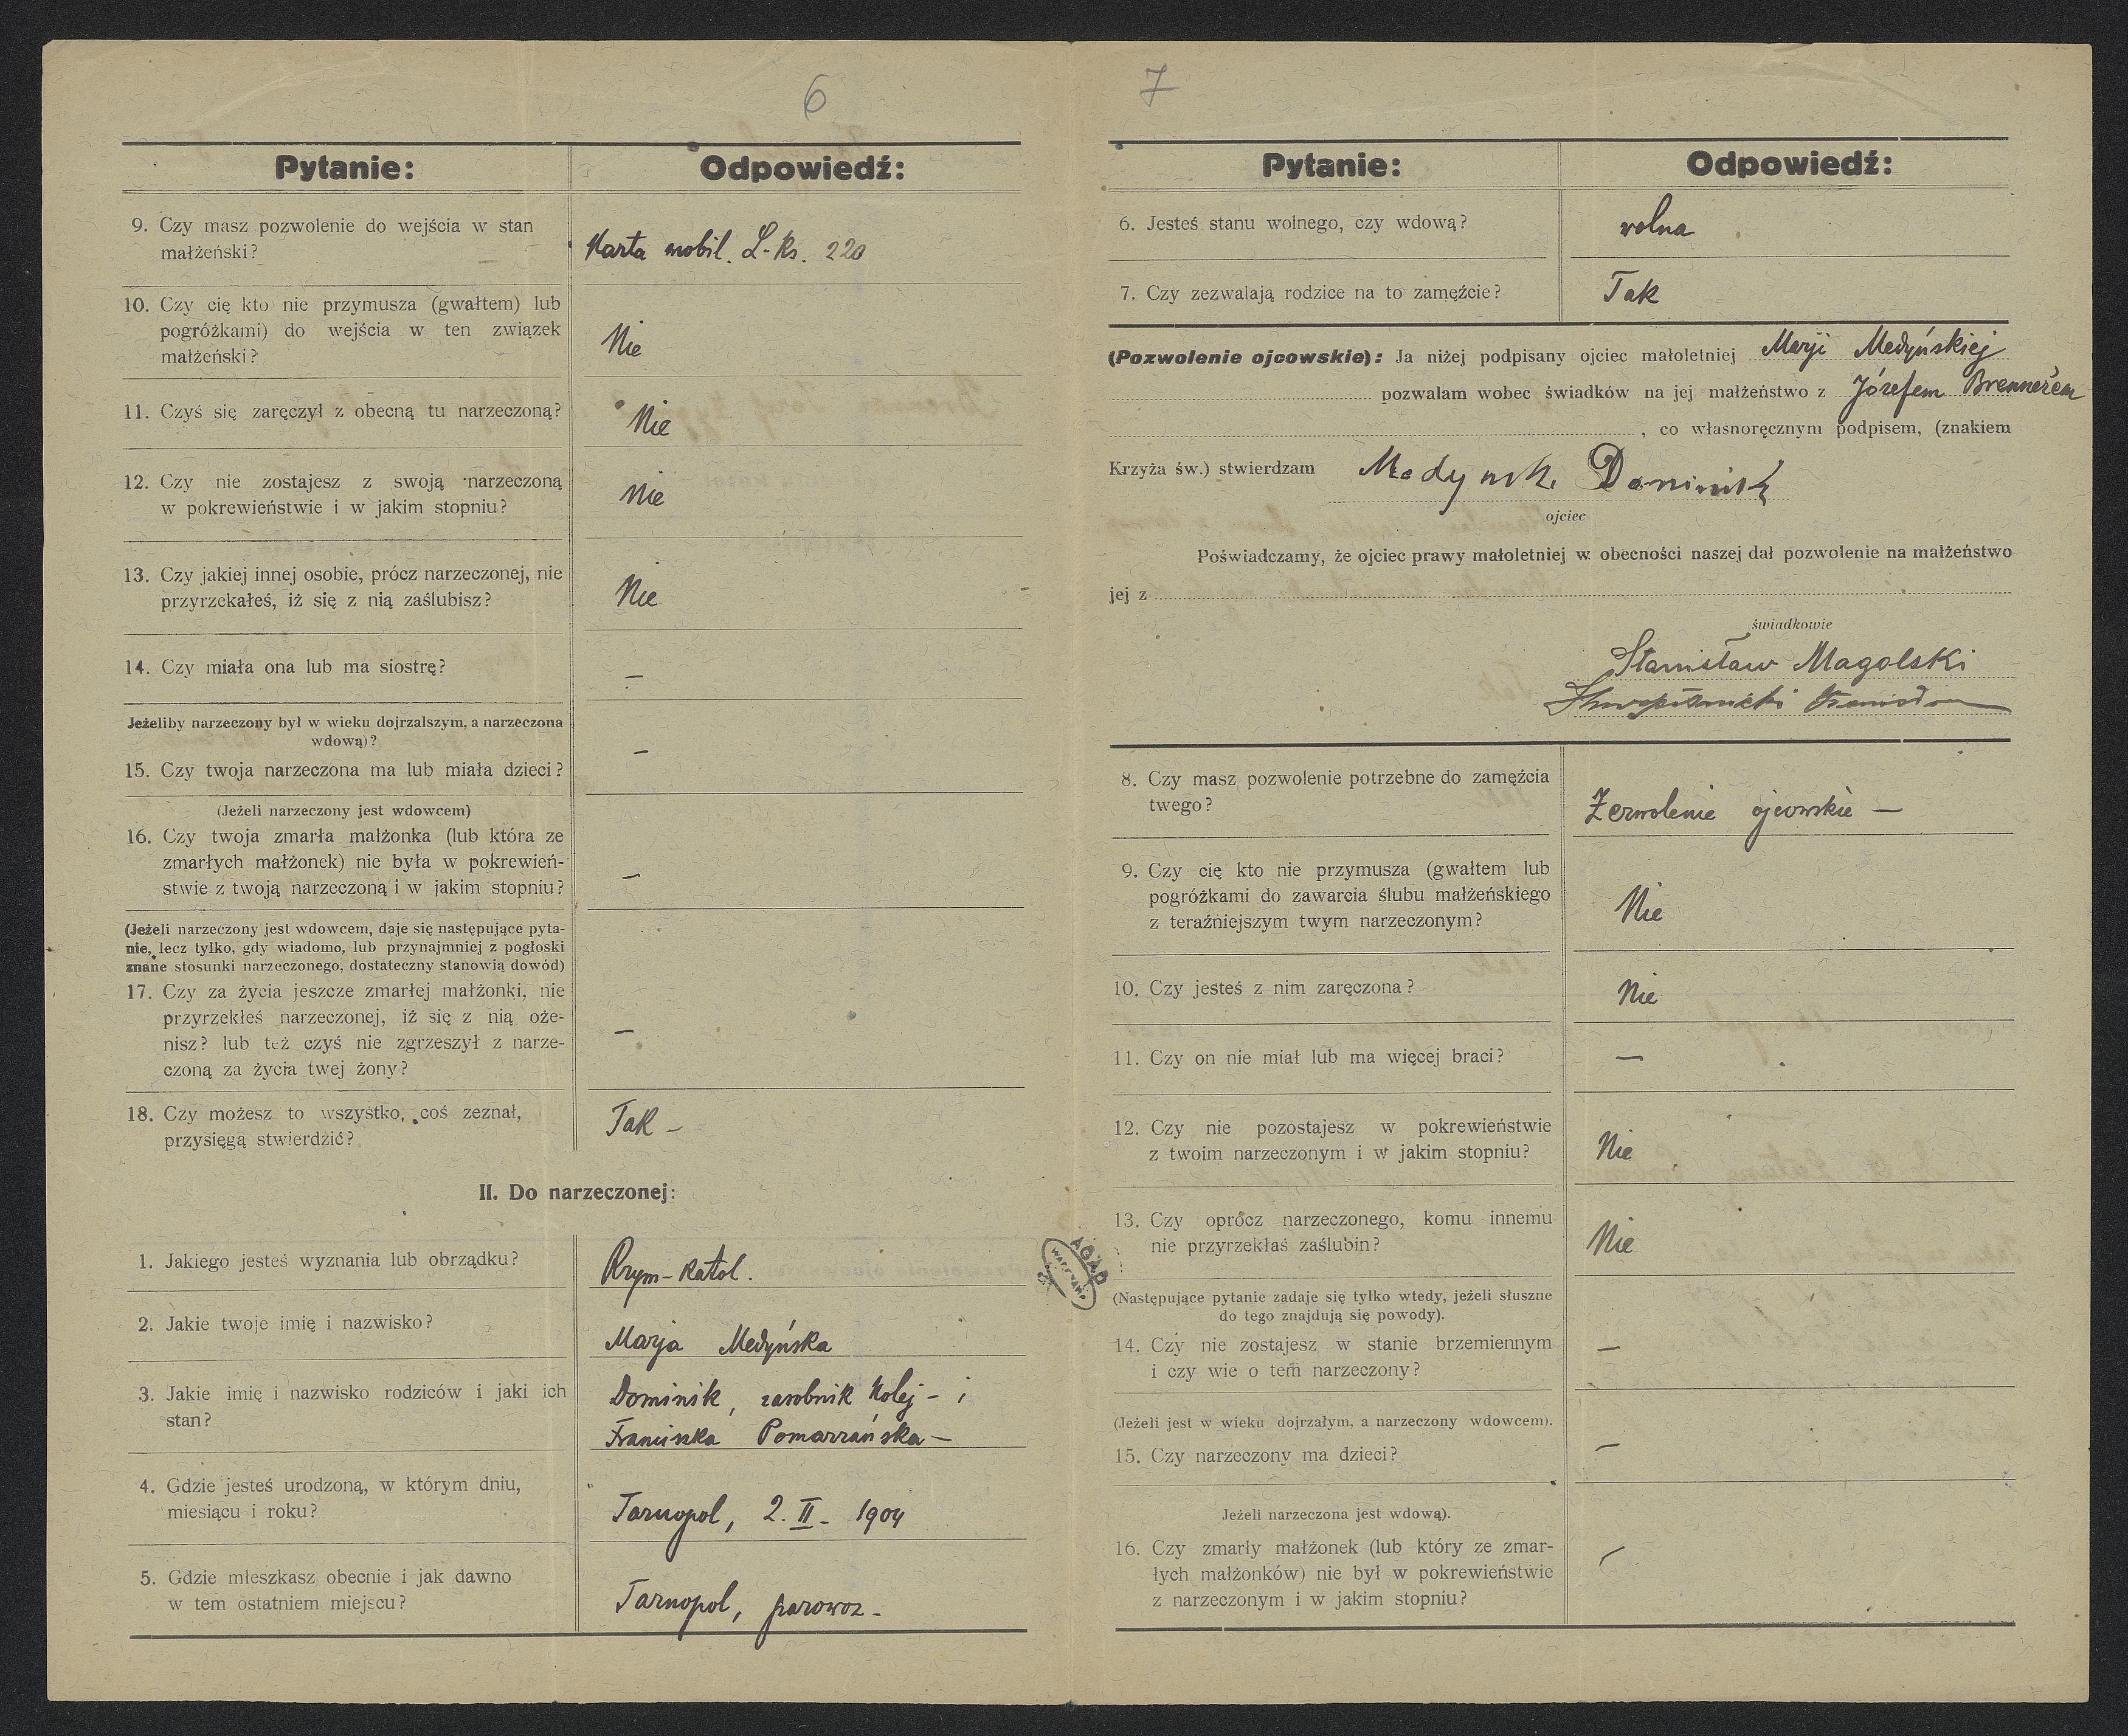 6
Pytanie:
Odpowiedź:
9. Czy masz pozwolenie do wejścia w stan
małżeński?
Karta mobil. L. Ks. 220
10. Czy cię kto nie przymusza (gwałtem) lub
pogróżkami) do wejścia w ten związek
małżeński?
Nie
11. Czyś się zaręczył z obecną tu narzeczoną?
Nie
12. Czy nie zostajesz z swoją narzeczoną
w pokrewieństwie i w jakim stopniu?
Nie
13. Czy jakiej innej osobie, prócz narzeczonej, nie
przyrzekałeś, iż się z nią zaślubisz?
Nie
14. Czy miała ona lub ma siostrę?
—
Jeżeliby narzeczony był w wieku dojrzalszym, a narzeczona
wdową)?
15. Czy twoja narzeczona ma lub miała dzieci?
—
(Jeżeli narzeczony jest wdowcem)
16. Czy twoja zmarła małżonka (lub która ze
zmarłych małżonek) nie była w pokrewień-
stwie z twoją narzeczoną i w jakim stopniu?
—
(Jeżeli narzeczony jest wdowcem, daje się następujące pyta-
nie, lecz tylko, gdy wiadomo, lub przynajmniej z pogłoski
znane stosunki narzeczonego, dostateczny stanowią dowód)
17. Czy za życia jeszcze zmarłej małżonki, nie
przyrzekłeś narzeczonej, iż się z nią oże-
nisz? lub też czyś nie zgrzeszył z narze-
czoną za życia twej żony?
—
18. Czy możesz to wszystko, coś zeznał,
przysięgą stwierdzić?
Tak —
II. Do narzeczonej:
1. Jakiego jesteś wyznania lub obrządku?
Rzym-katol.
2. Jakie twoje imię i nazwisko?
Marja Medyńska
3. Jakie imię i nazwisko rodziców i jaki ich
stan?
Dominik, zarobnik kolej - i
Franciszka Pomarzańska —
4. Gdzie jesteś urodzoną, w którym dniu,
miesiącu i roku?
Tarnopol, 2. II. 1904
5. Gdzie mieszkasz obecnie i jak dawno
w tem ostatniem miejscu?
Tarnopol, parowoz.
AGAD
WARSZAWA
7
Pytanie:
Odpowiedź:
6. Jesteś stanu wolnego, czy wdową?
wolna
7. Czy zezwalają rodzice na to zamęźcie?
Tak
(Pozwolenie ojcowskie): Ja niżej podpisany ojciec małoletniej Marji Medyńskiej
pozwalam wobec świadków na jej małżeństwo z Józefem Brennerem
, co własnoręcznym podpisem, (znakiem
Krzyża św.) stwierdzam Medynsk. Dominik
ojciec
Poświadczamy, że ojciec prawy małoletniej w obecności naszej dał pozwolenie na małżeństwo
jej z
świadkowie
Stanisław Magolski
8. Czy masz pozwolenie potrzebne do zamęźcia
twego?
Zezwolenie ojcowskie —
9. Czy cię kto nie przymusza (gwałtem lub
pogróżkami do zawarcia ślubu małżeńskiego
z teraźniejszym twym narzeczonym?
Nie
10. Czy jesteś z nim zaręczona?
Nie
11. Czy on nie miał lub ma więcej braci?
—
12. Czy nie pozostajesz w pokrewieństwie
z twoim narzeczonym i w jakim stopniu?
Nie
13. Czy oprócz narzeczonego, komu innemu
nie przyrzekłaś zaślubin?
Nie
(Następujące pytanie zadaje się tylko wtedy, jeżeli słuszne
do tego znajdują się powody).
14. Czy nie zostajesz w stanie brzemiennym
i czy wie o tem narzeczony?
—
(Jeżeli jest w wieku dojrzałym, a narzeczony wdowcem).
15. Czy narzeczony ma dzieci?
—
Jeżeli narzeczona jest wdową).
16. Czy zmarły małżonek (lub który ze zmar-
łych małżonków) nie był w pokrewieństwie
z narzeczonym i w jakim stopniu?
—